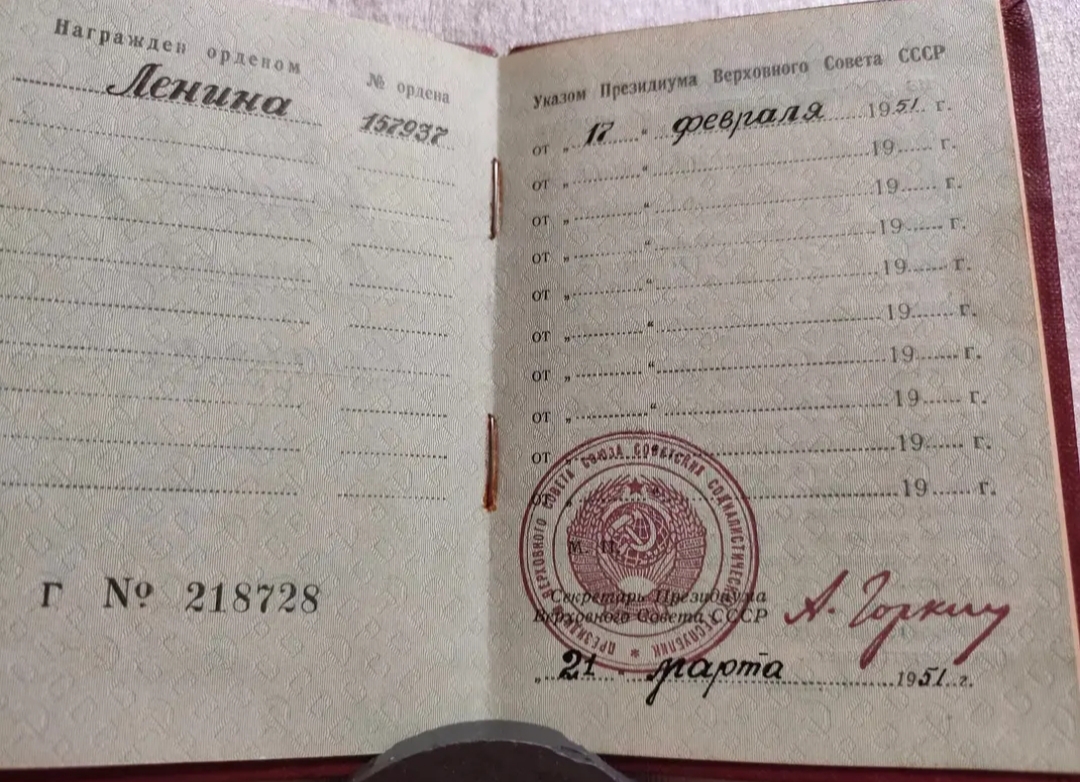 Награжден орденом
№ ордена
Ленина
157937
Г № 218728
Указом Президиума Верховного Совета СССР
от „ 17 “ февраля 1951 г.
от „ “ 19 г.
от „ “ 19 г.
от „ “ 19 г.
от „ “ 19 г.
от „ “ 19 г.
от „ “ 19 г.
от „ “ 19 г.
от „ “ 19 г.
от „ “ 19 г.
ПРЕЗИДИУМ ВЕРХОВНОГО СОВЕТА СОЮЗА СОВЕТСКИХ СОЦИАЛИСТИЧЕСКИХ РЕСПУБЛИК
М. П.
Секретарь Президиума
Верховного Совета СССР
А. Горкин
„ 21 “ марта 1951 г.